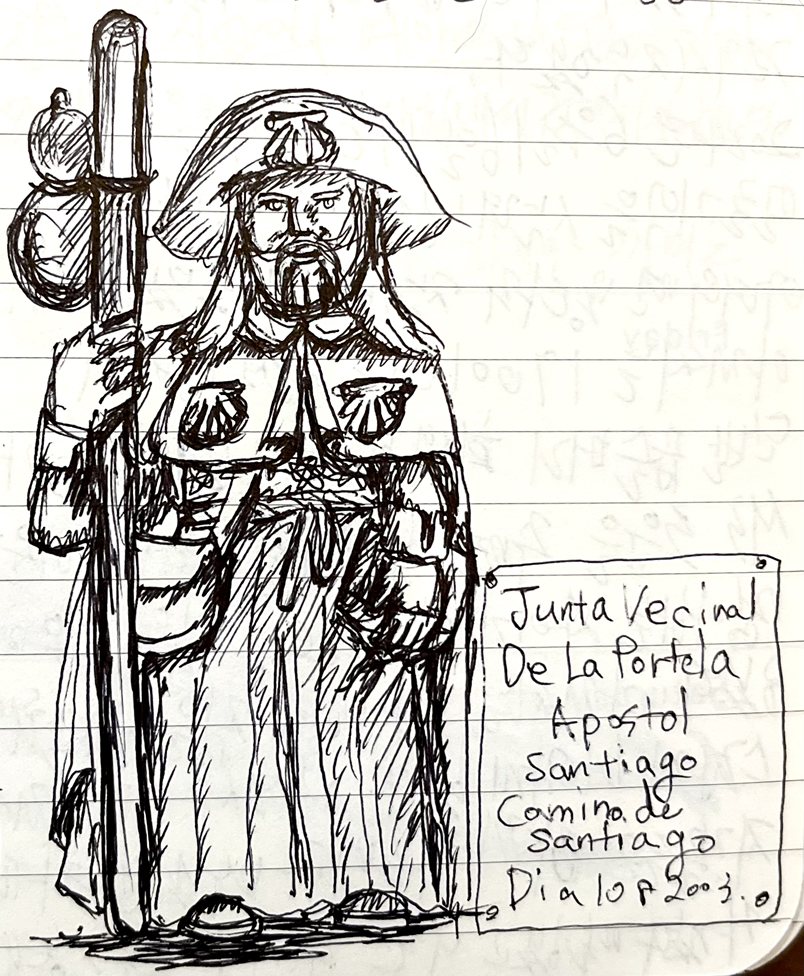 Junta Vecinal
De La Portela
Apostol
Santiago
Camino de
Santiago
Dia 10 2003.